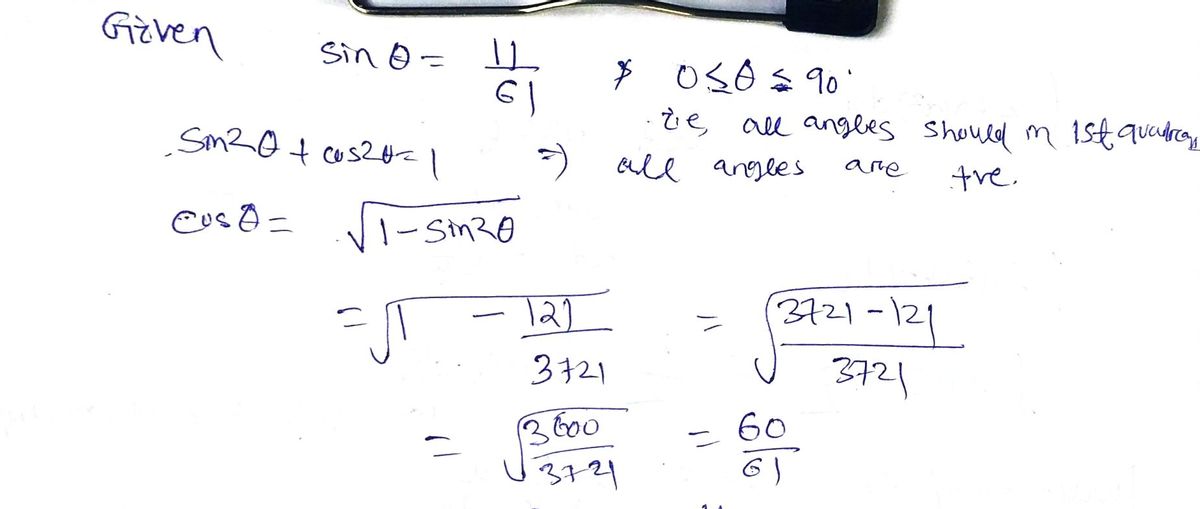 Given sin θ = 11/61 & 0 ≤ θ ≤ 90°
i.e, all angles should in 1st
sin2θ + cos2θ = 1 ⇒ all angles are +ve.
cos θ = √(1 - sin2θ)
= √(1 - 121/3721) = √((3721 - 121)/3721)
= √(3600/3721) = 60/61